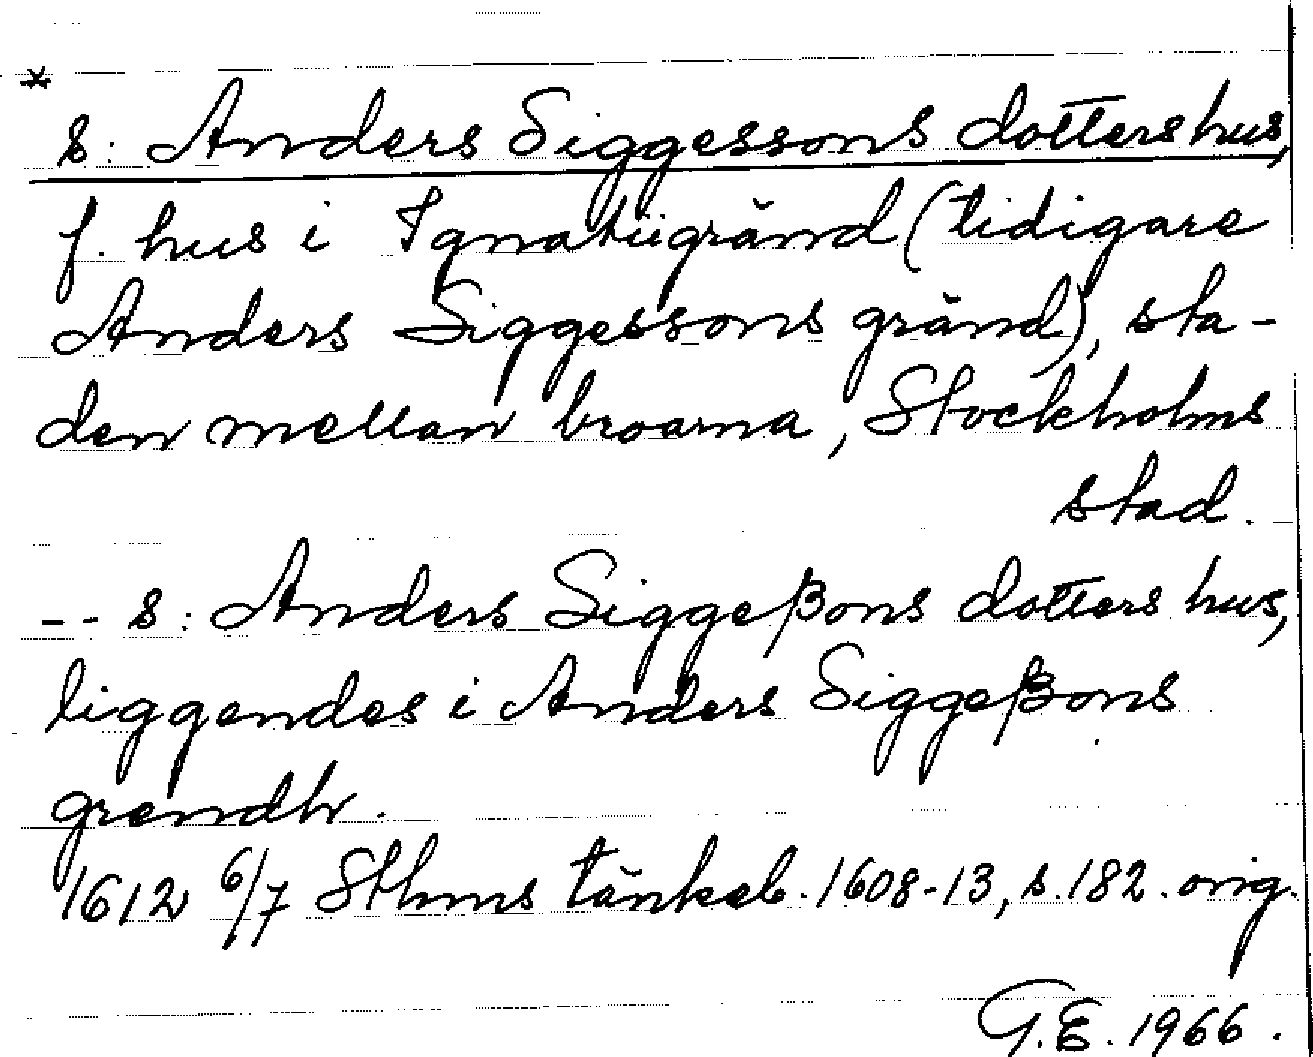 *
s: Anders Siggessons dotters hus,
f. hus i Ignatiigränd (tidigare
Anders Siggessons gränd), sta-
den mellan broarna, Stockholms
stad.
-- s: Anders Siggeßons dotters hus,
liggendes i Anders Siggeßons
grendh.
1612 6/7 Sthms tänkeb. 1608-13, s. 182. orig.
G.E. 1966.